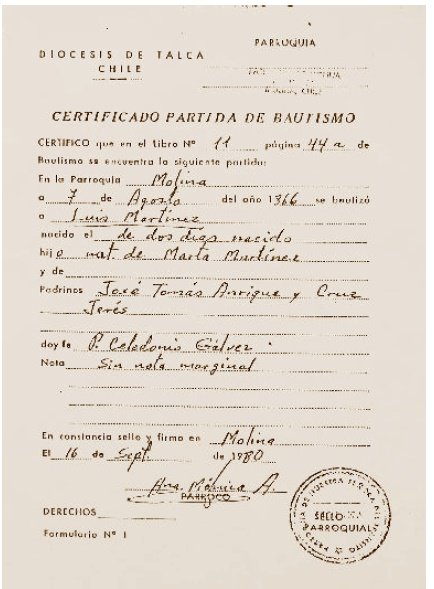 DIOCESIS DE TALCA
CHILE
PARROQUIA
CERTIFICADO PARTIDA DE BAUTISMO
CERTIFICO que en el Libro Nº 11 página 44 a de
Bautismo se encuentra la siguiente partida:
En la Parroquia Molina
a 7 de Agosto del año 1866 se bautizó
a Luis Martínez
nacido el de dos días nacido
hijo nat. de Marta Martínez
y de
Padrinos José Tomás Anrique y Cruz
Jerés
doy fe P. Celedonio Gálvez
Nota Sin nota marginal
En constancia sello y firmo en Molina
El 16 de Sept. de 1980
Hna. Mónica A.
PARROCO
DERECHOS
Formulario Nº 1
SELLO
PARROQUIAL